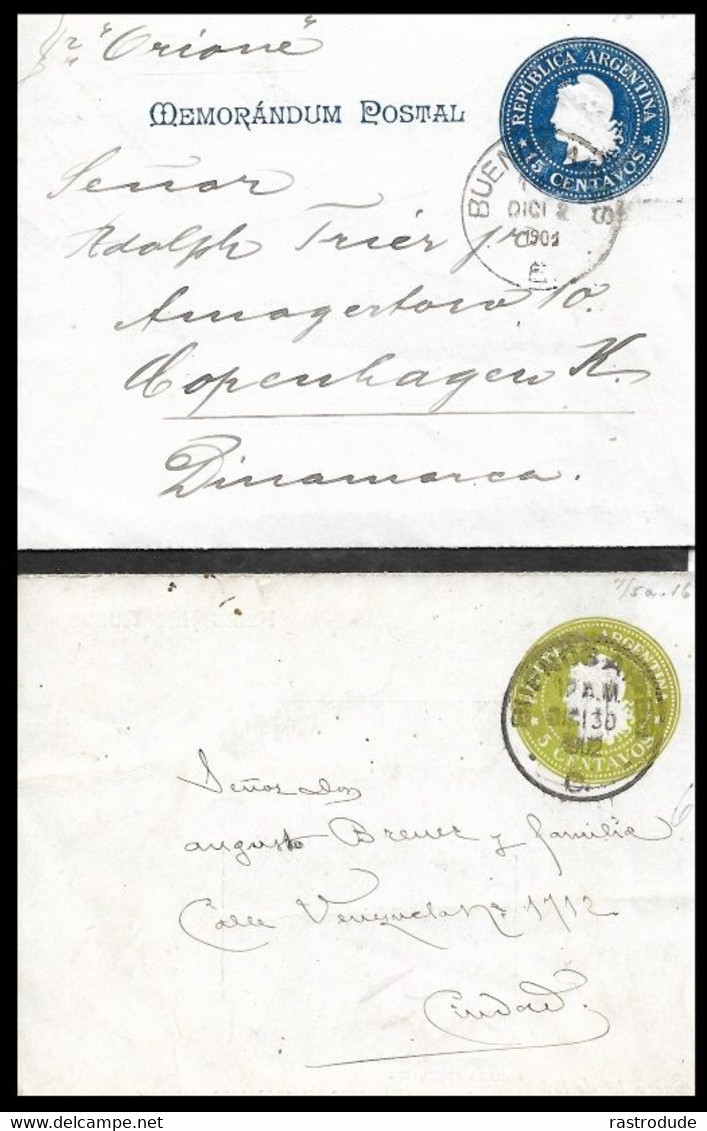 "Orione"
MEMORÁNDUM POSTAL
REPÚBLICA ARGENTINA
15 CENTAVOS
BUENOS AIRES
DICI 2
1901
E.
Señor
Adolph Trier jr
Amagertorv 10.
Copenhagen K.
Dinamarca.
7/5a.16
REPÚBLICA ARGENTINA
5 CENTAVOS
BUENOS AIRES
12 A.M.
DICI 30
1902
C.
Señor don
augusto Breuer y familia
Calle Venezuela Nº 1712
Ciudad.
delcampe.net
rastrodude